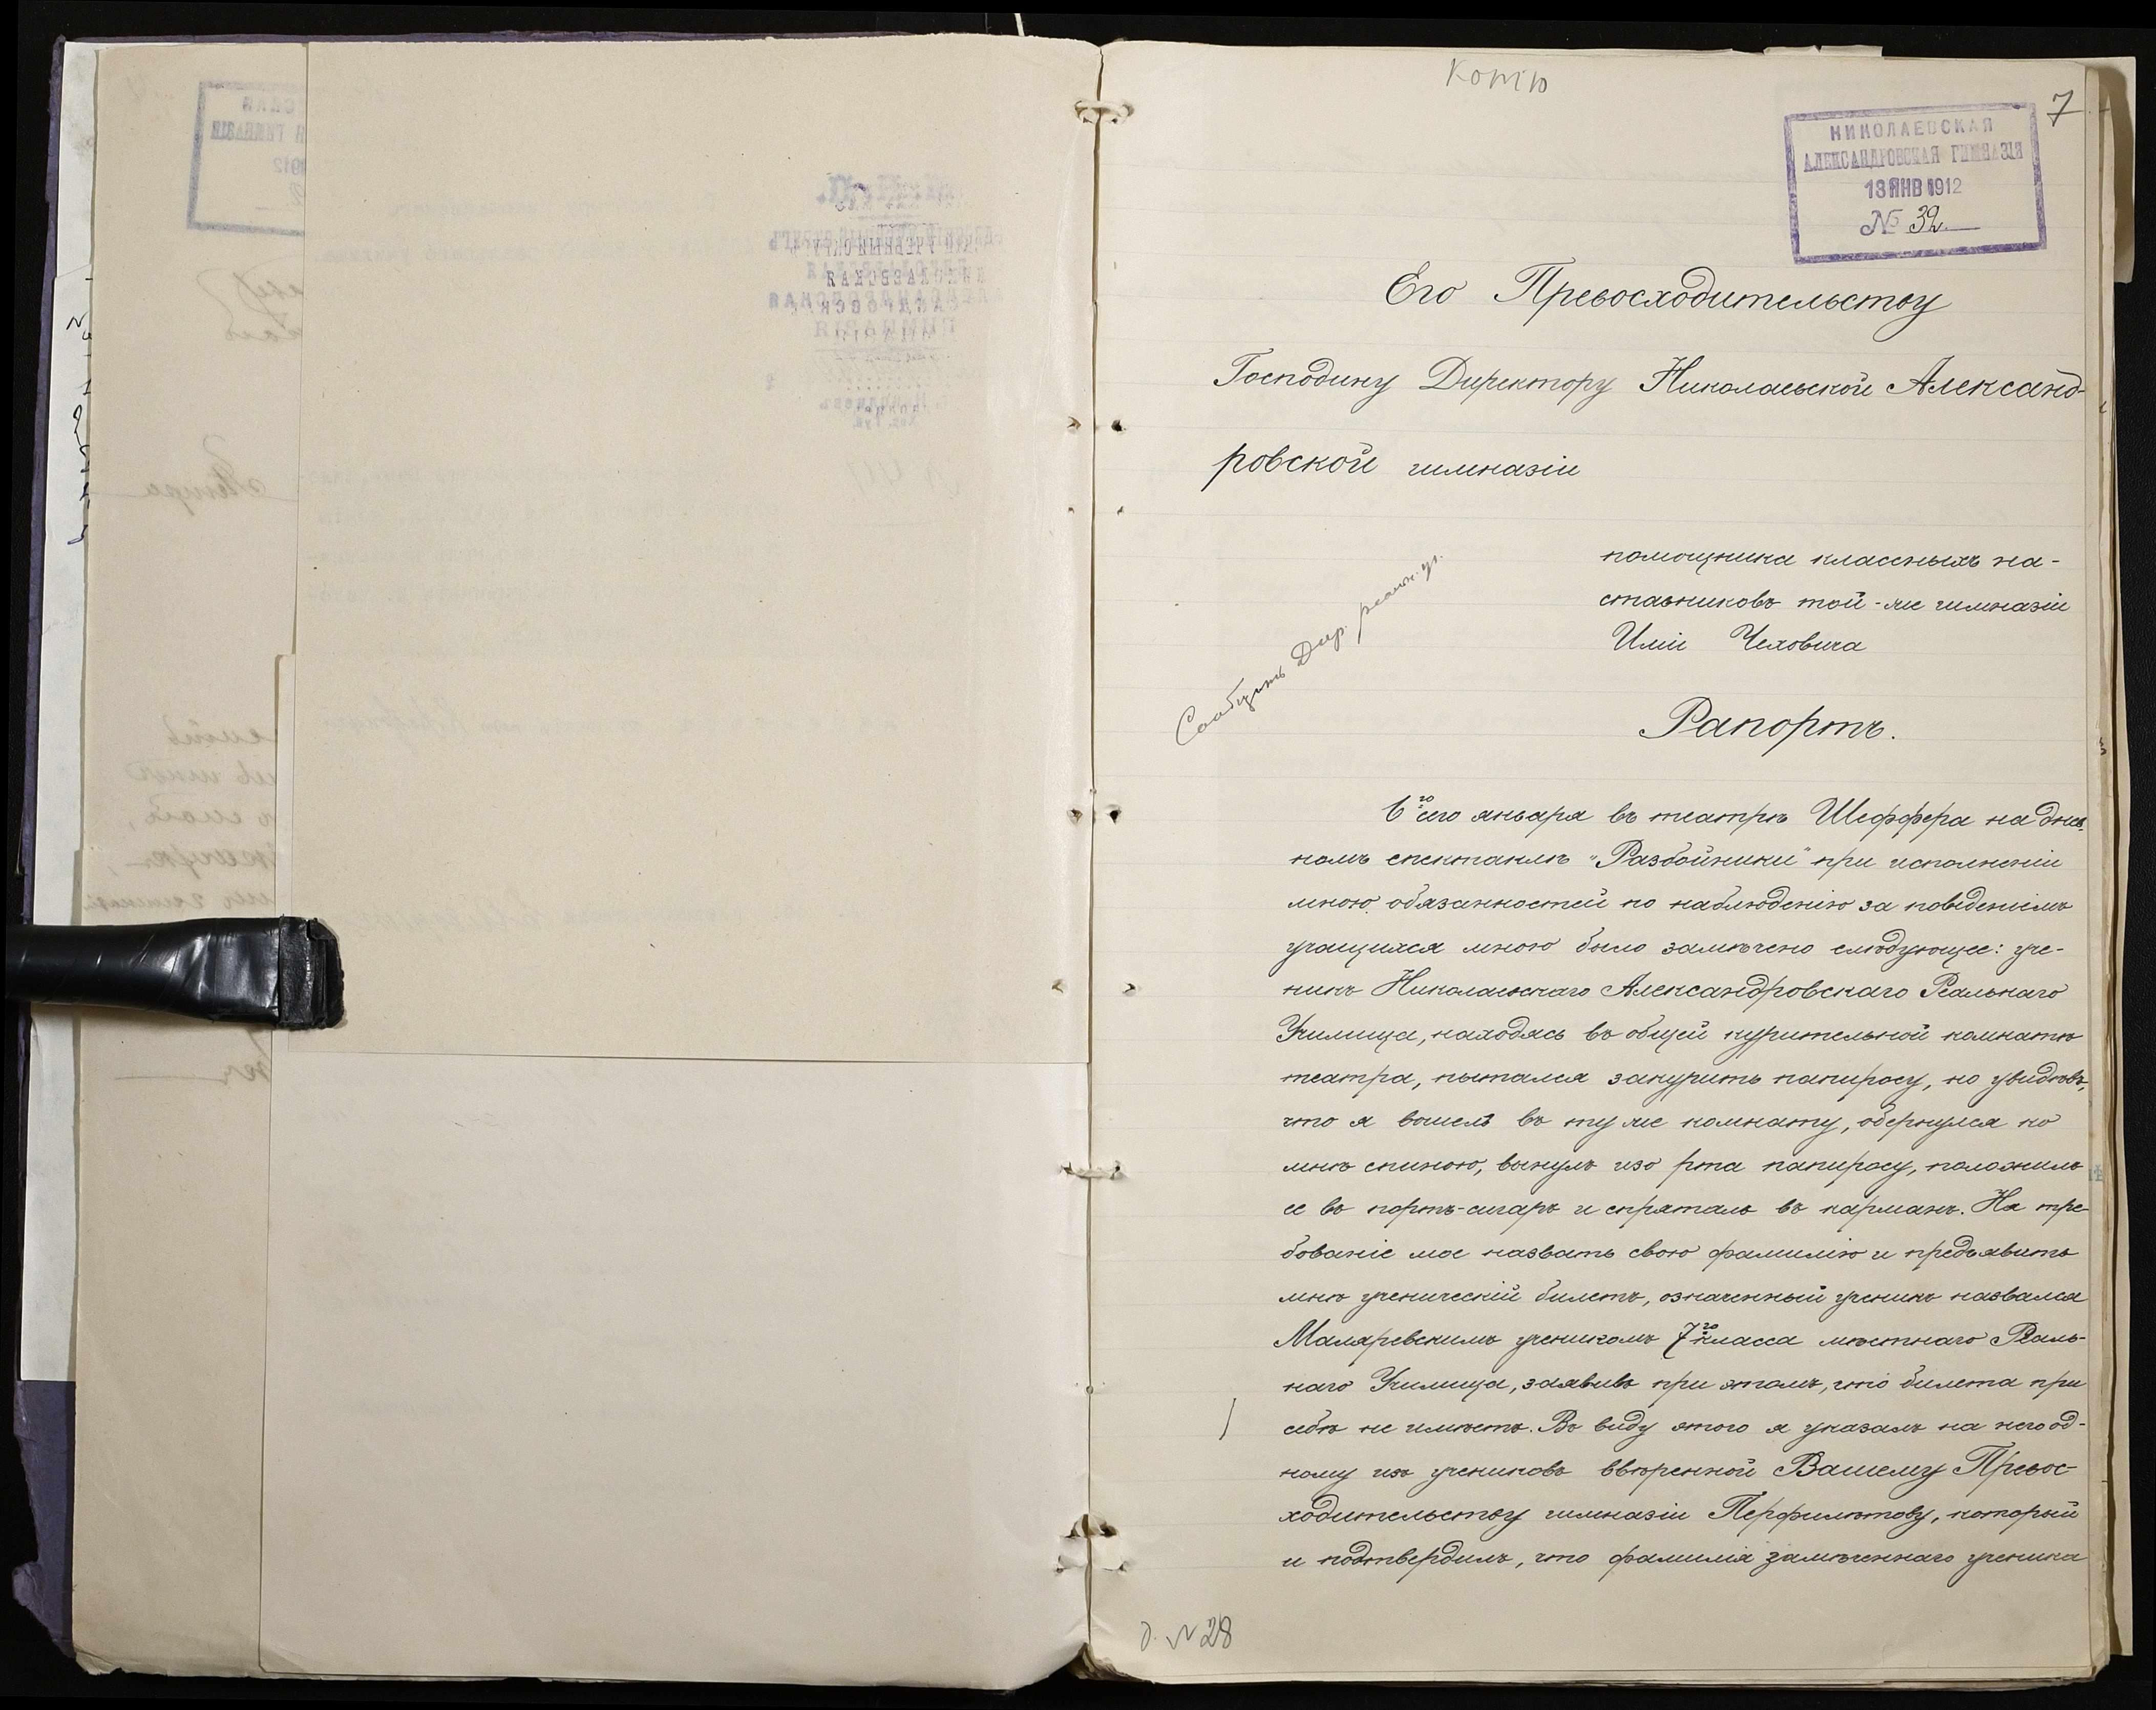 копію
7
НИКОЛАЕВСКАЯ
АЛЕКСАНДРОВСКАЯ ГИМНАЗІЯ
13 ЯНВ 1912
№ 32
Его Превосходительству
Господину Директору Николаевской Александ-
ровской гимназіи
помощника классныхъ на-
ставниковъ той-же гимназіи
Иліи Чеховича
Сообщить Дир. реальн. уч.
Рапортъ.
6го сего января въ театрѣ Шеффера на днев-
номъ спектаклѣ "Разбойники" при исполненіи
мною обязанностей по наблюденію за поведеніемъ
учащихся мною было замѣчено слѣдующее: уче-
никъ Николаевскаго Александровскаго Реальнаго
Училища, находясь въ общей курительной комнатѣ
театра, пытался закурить папиросу, но увидѣвъ,
что я вошелъ въ ту же комнату, обернулся ко
мнѣ спиною, вынулъ изо рта папиросу, положилъ
ее въ портъ-сигаръ и спряталъ въ карманъ. На тре-
бованіе мое назвать свою фамилію и предъявить
мнѣ ученическій билетъ, означенный ученикъ назвался
Маляревскимъ ученикомъ 7го класса мѣстнаго Реаль-
наго Училища, заявивъ при этомъ, что билета при
себѣ не имѣетъ. Въ виду этого я указалъ на него од-
ному изъ учениковъ ввѣренной Вашему Превос-
ходительству гимназіи Перфилѣтову, который
и подтвердилъ, что фамилія замѣченнаго ученика
д. № 28